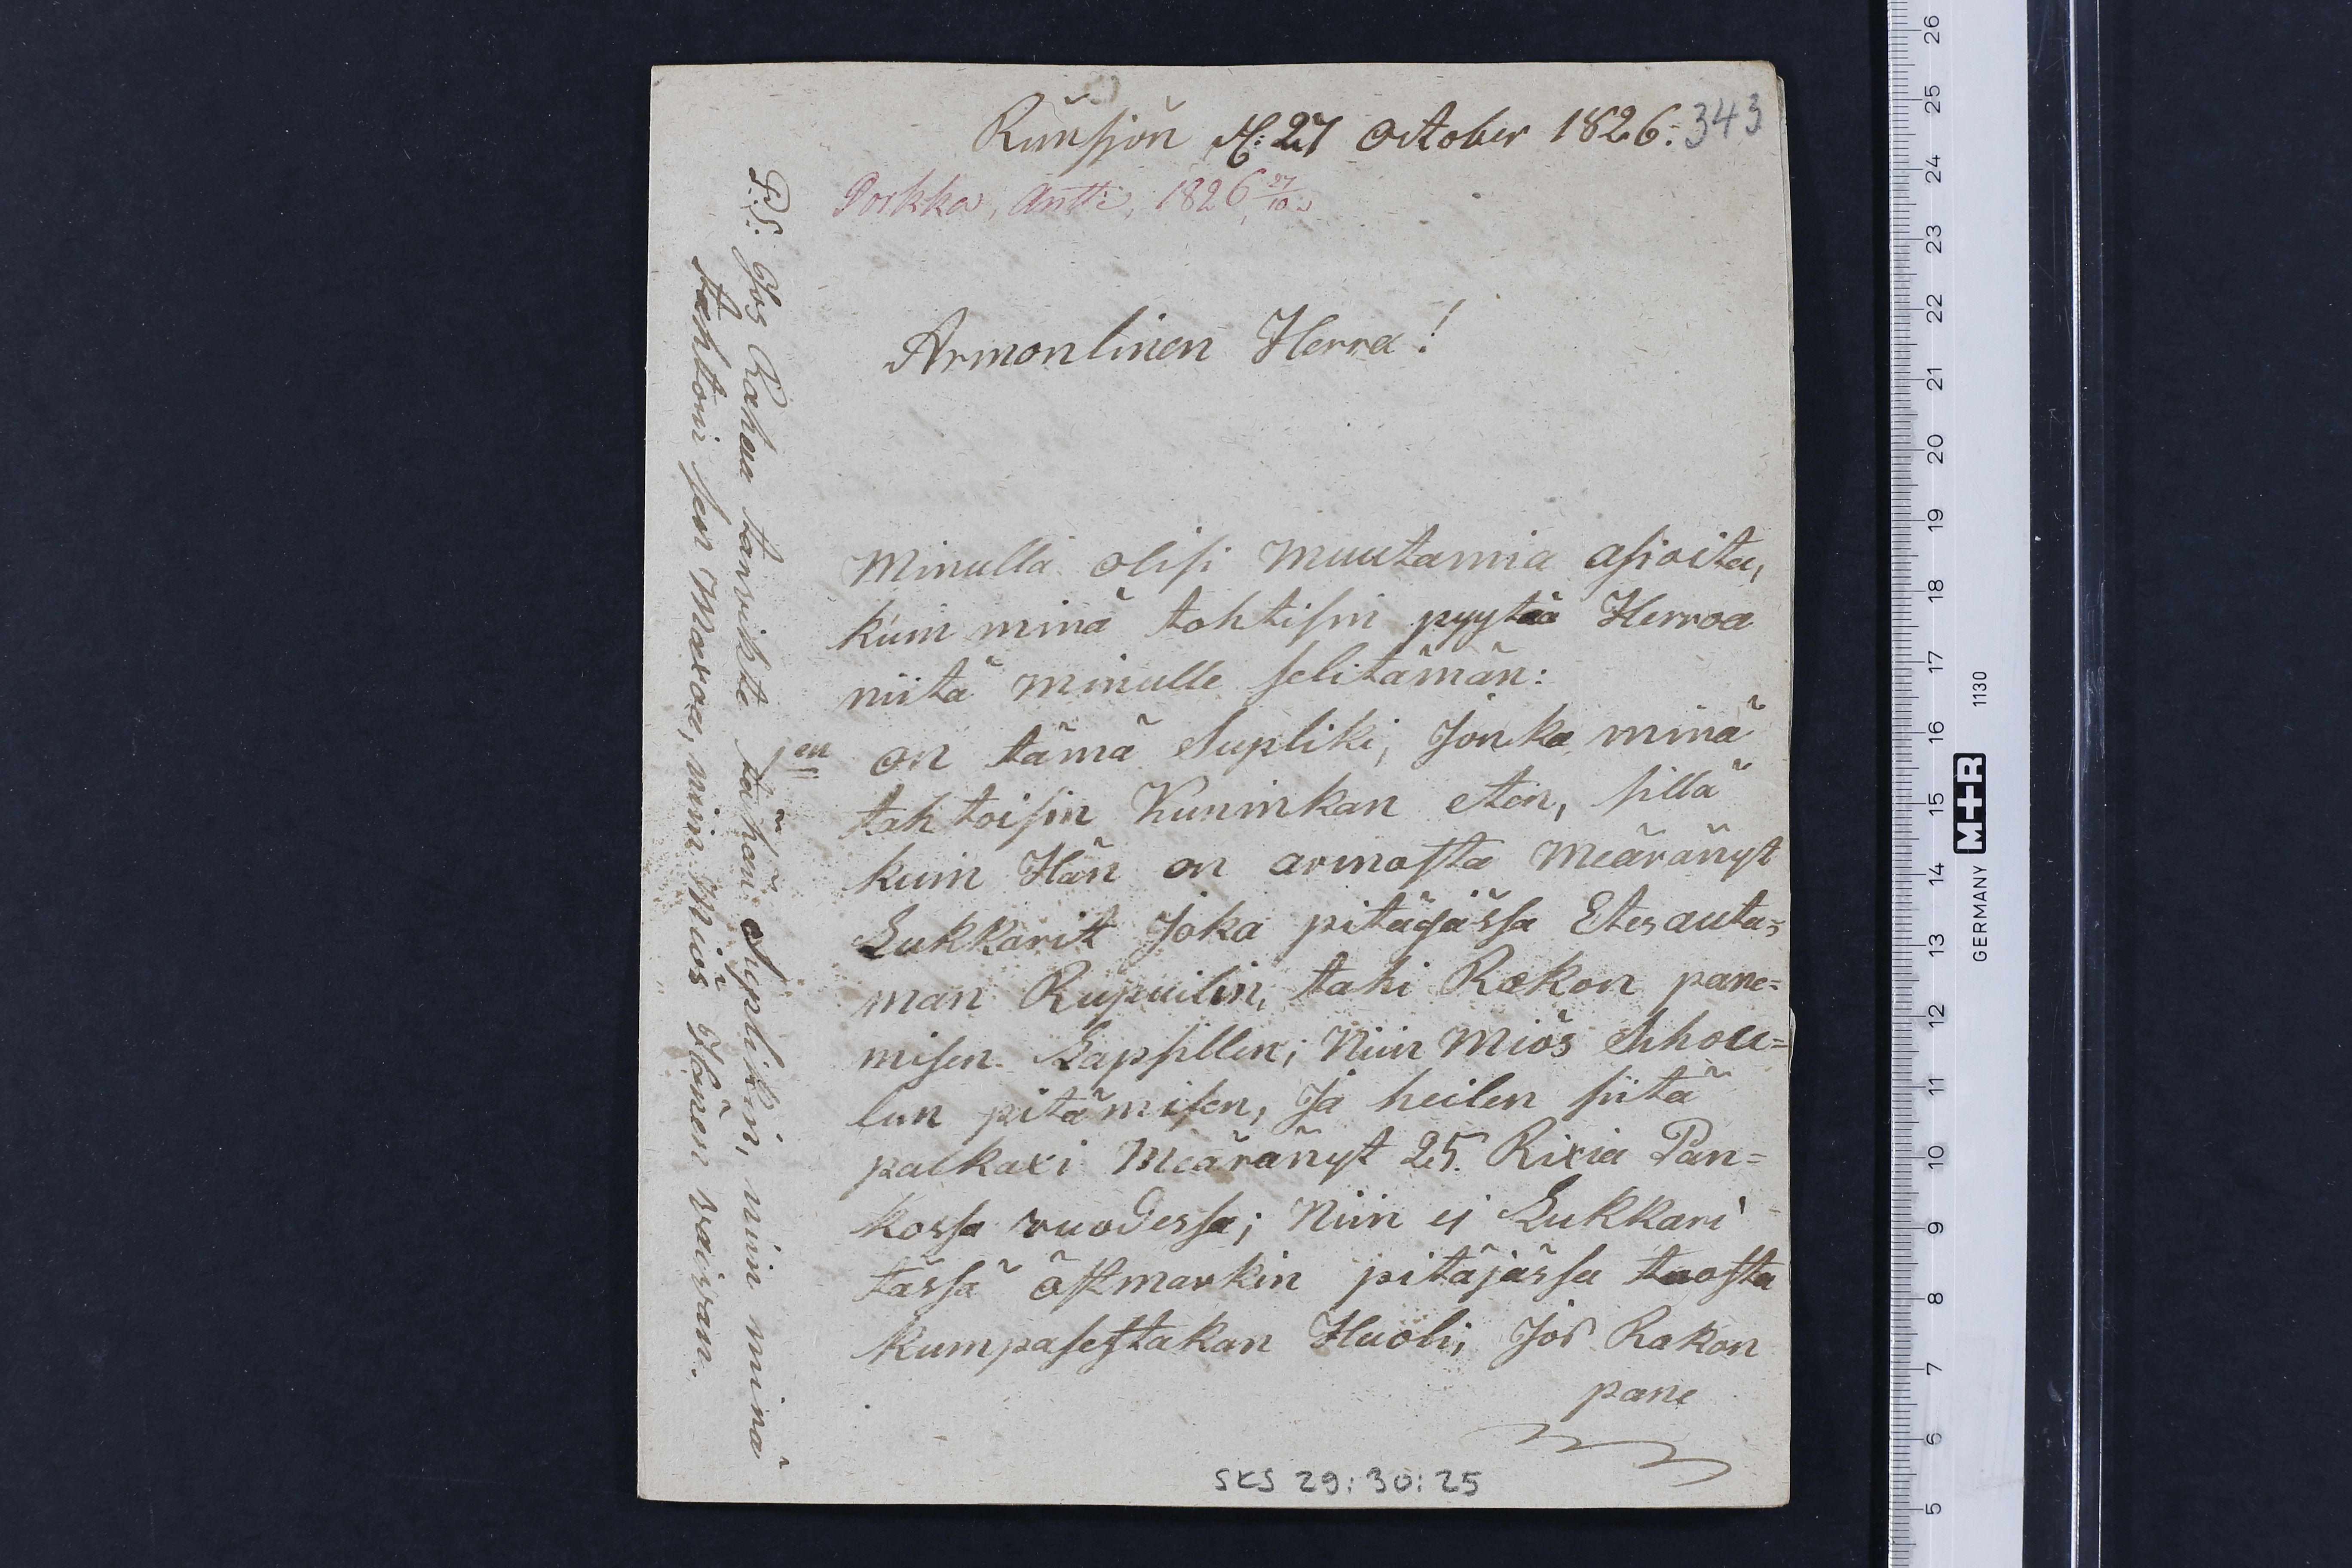 Runsjön d: 27 October 1826.
343
Porkka, Antti, 1826, 27/10.
Armonlinen Herra!
Minulla olisi muutamia asioita,
kuin minä tohtisin pyytää Herroa
niitä minulle selitämän:
1en on tämä Supliki, Jonka minä
tahtoisin Kuninkan eten, sillä
kuin Hän on armosta Meäränyt
Lukkarit Joka pitäjässa Etesauta=
man Rupuilin, tahi Rokon pane=
misen Lapsillen; Niin Miös Schou=
lun pitämisen, Ja heilen siitä
palkaxi Meäränyt 25. Rixia Pan=
kossa vuodessa; Niin ej Lukkari
tässä östmarkin pitäjässa tuosta
kumpasestakan Huoli, Jos Rokon
pane
P:S: Jos Rahaa tarvitte tähän Suplikin, niin minä
tahton sen Maxaa, niin Miös Hänen vaivan.
SKS 29:30:25
GERMANY M+R 1130
5 6 7 8 9 10 11 12 13 14 15 16 17 18 19 20 21 22 23 24 25 26